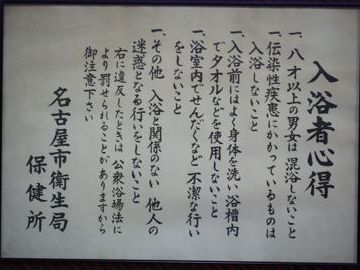 入浴者心得
一、八才以上の男女は混浴しないこと
一、伝染性疾患にかかっているものは
入浴しないこと
一、入浴前にはよく身体を洗い浴槽内
でタオルなどを使用しないこと
一、浴室内でせんたくなど不潔な行い
をしないこと
一、その他 入浴と関係のない 他人の
迷惑となる行いをしないこと
右に違反したときは 公衆浴場法に
より罰せられることがありますから
御注意下さい
名古屋市衛生局
保健所